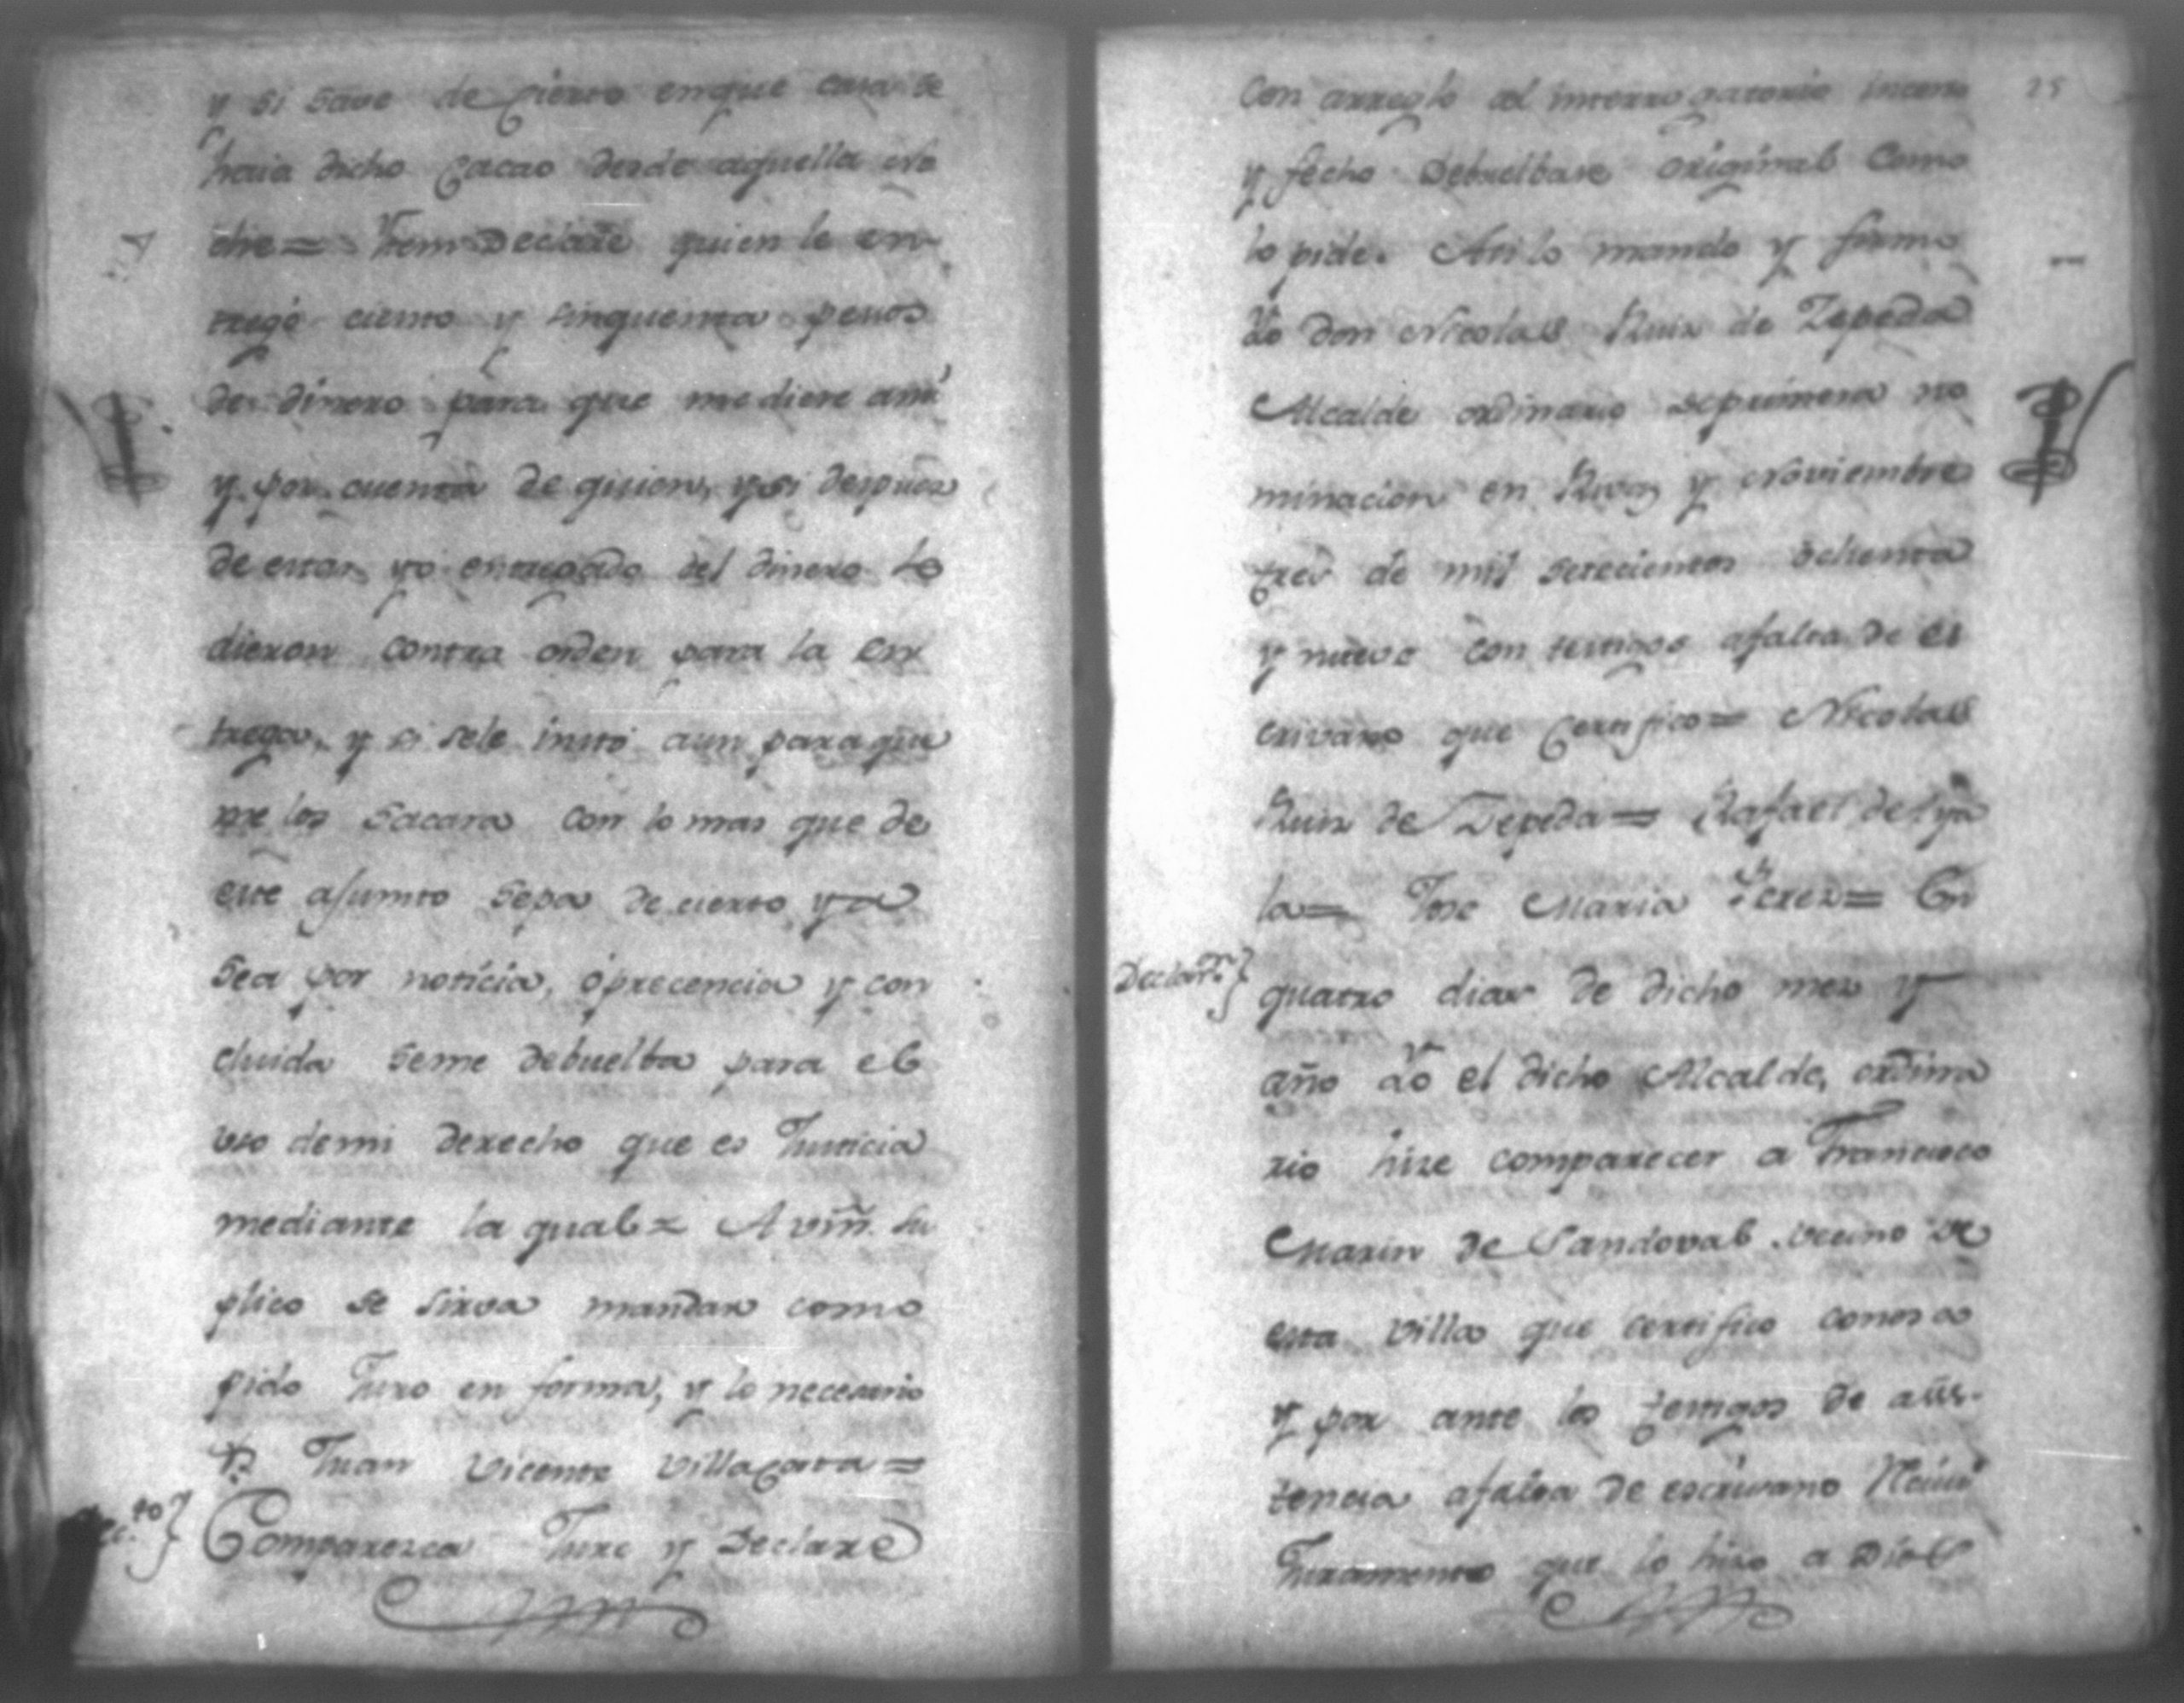 y si save de Cierto enque casa se
haia dicho Cacao desde aquella no
che= Ytem Declare quien le en-
tregó ciento y sinquenta pesos
de dinero para que me diese amí
y por cuenta de quien, y si despues
de estar yo entregado del dinero le
dieron contra orden para la en
trega, y si sele instó aun paraque
me los sacara con lo mas que de
este asumto sepa de cierto ya
sea por noticia, ó precencia y con
cluida seme debuelba para el
uso demi derecho que es Justicia
mediante la qual= A vm̃. su
plico se sirva mandar como
pido Juro en forma, y lo necesario
Juan Vicente Villagara=
Comparezca Jure y Declare
25
Con arreglo al interrogatorio incerto
y fecho Debuelbase original Como
lo pide. Asi lo mando y firmo
Yo Don Nicolas Ruiz de Zepeda
Alcalde ordinario de primera no
minacion en Rivas y Noviembre
tres de mil setecientos ochenta
y nueve con testigos afalta de es
crivano que Certifico= Nicolas
Ruiz de Zepeda= Rafael de Aya
la= Jose Maria Perez= En
Declaron.}
quatro dias de dicho mes y
año Yo el dicho Alcalde, ordina
rio hize comparecer a Francisco
Marin de Sandoval vecino de
esta Villa que certifico conosco
y por ante los testigos de asis-
tencia afalta de escrivano Recivi
Juramento que lo hizo a Dios